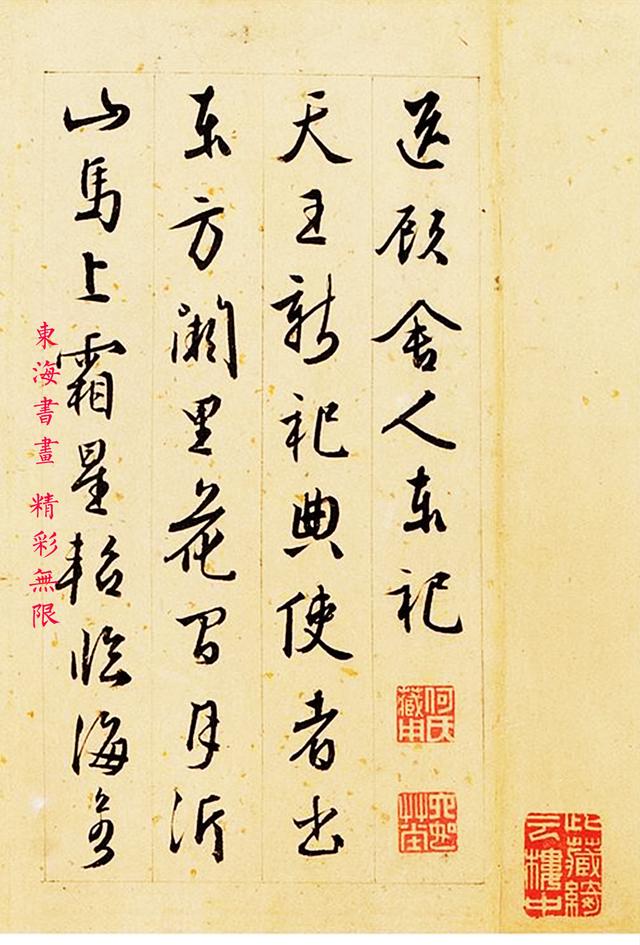 此藏綺云樓中
送顧舍人東祀
何氏藏用
天王新祀典使者出
東方闕里花間月沂
山馬上霜星軺臨海
東海書畫 精彩無限